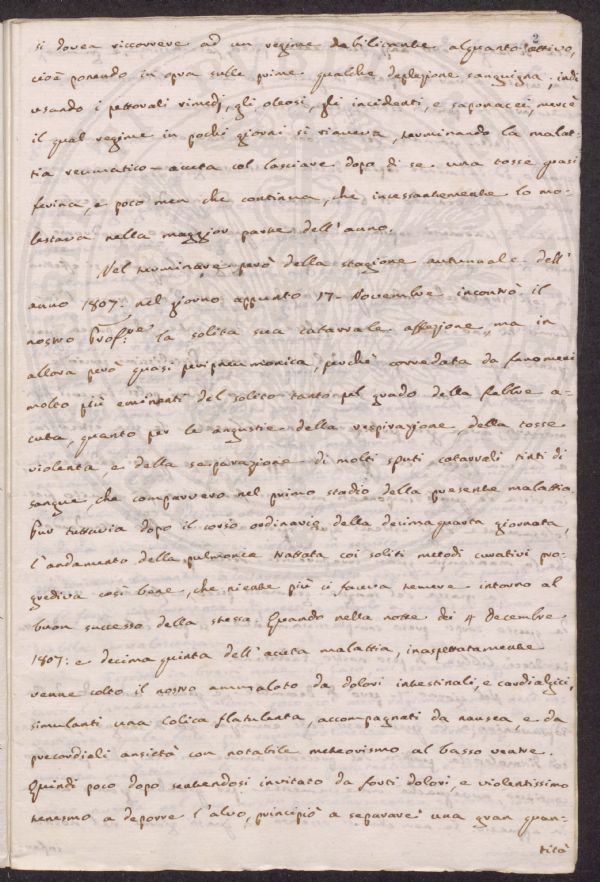 2
si dovea riccorrere ad un regime debilitante alquanto attivo,
cioè ponendo in opra sulle prime qualche deplezione sanguigna, indi
usando i pettorali rimedj, gli oleosi, gli incidenti, e saponacei, mercè
il qual regime in pochi giorni si riaveva, terminando la malat-
tia reumatico-acuta col lasciare dopo di se una tosse quasi
ferina, e poco men che continua, che incessantemente lo mo-
lestava nella maggior parte dell'anno.
Nel terminare però della stagione autunnale dell'
anno 1807: nel giorno appunto 17 Novembre incontrò il
nostro Profre. la solita sua catarrale affezione, ma in
allora però quasi peripneumonica, perchè corredata da fenomeni
molto più eminenti del solito tanto pel grado della febbre a-
cuta, quanto per le angustie della respirazione, della tosse
violenta e della separazione di molti sputi catarrali tinti di
sangue, che comparvero nel primo stadio della presente malattia.
Pur tuttavia dopo il corso ordinario della decimaquarta giornata,
l'andamento della pulmonia trattata coi soliti metodi curativi pro-
grediva così bene, che niente più ci faceva temere intorno al
buon successo della stessa. Quando nella notte dei 4 Decembre
1807: e decima quinta dell'acuta malattia, inaspettatamente
venne colto il nostro ammalato da dolori intestinali, e cardialgici,
simulanti una colica flatulenta, accompagnati da nausea e da
precordiali ansietà con notabile meteorismo al basso ventre.
Quindi poco dopo sentendosi invitato da forti dolori, e violentissimo
tenesmo a deporre l'alvo, principiò a separare una gran quan-
tità